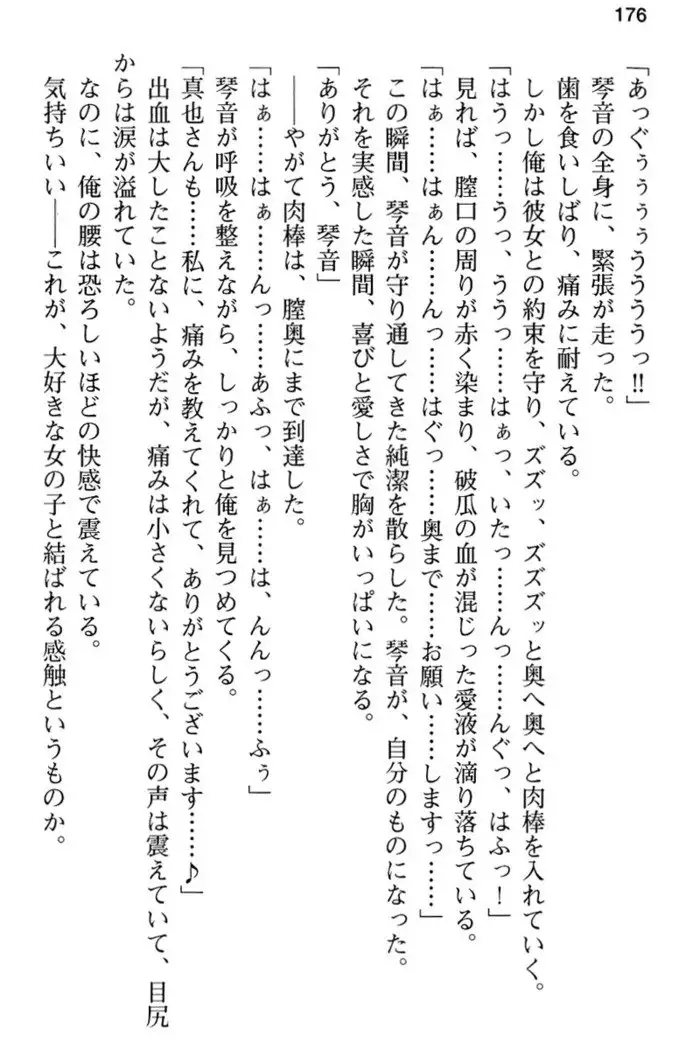 176
「あっぐぅぅぅぅうううっ!!」
琴音の全身に、緊張が走った。
歯を食いしばり、痛みに耐えている。
しかし俺は彼女との約束を守り、ズズッ、ズズズッと奥へ奥へと肉棒を入れていく。
「はうっ……うっ、ううっ……はぁっ、いたっ……んっ……んぐっ、はふっ!」
見れば、膣口の周りが赤く染まり、破瓜の血が混じった愛液が滴り落ちている。
「はぁ……はぁん……んっ……はぐっ……奥まで……お願い……しますっ……」
この瞬間、琴音が守り通してきた純潔を散らした。琴音が、自分のものになった。
それを実感した瞬間、喜びと愛しさで胸がいっぱいになる。
「ありがとう、琴音」
――やがて肉棒は、膣奥にまで到達した。
「はぁ……はぁ……んっ……あふっ、はぁ……は、んんっ……ふぅ」
琴音が呼吸を整えながら、しっかりと俺を見つめてくる。
「真也さんも……私に、痛みを教えてくれて、ありがとうございます……♪」
出血は大したことないようだが、痛みは小さくないらしく、その声は震えていて、目尻
からは涙が溢れていた。
なのに、俺の腰は恐ろしいほどの快感で震えている。
気持ちいい――これが、大好きな女の子と結ばれる感触というものか。